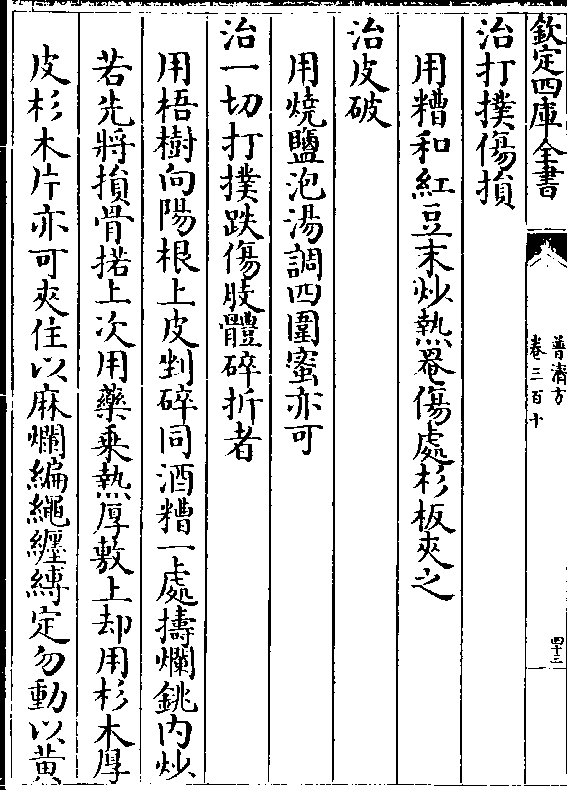 欽定四庫全書
普濟方
卷三百十
四十三
治打撲傷損
用糟和紅豆末炒熱罨傷處杉板夾之
治皮破
用燒鹽泡湯調四圍蜜亦可
治一切打撲跌傷肢體碎折者
用梧樹向陽根上皮剉碎同酒糟一處擣爛銚内炒
若先將損骨掿上次用藥乗熱厚敷上却用杉木厚
皮杉木片亦可夾住以麻爛編繩纒縛定勿動以黄